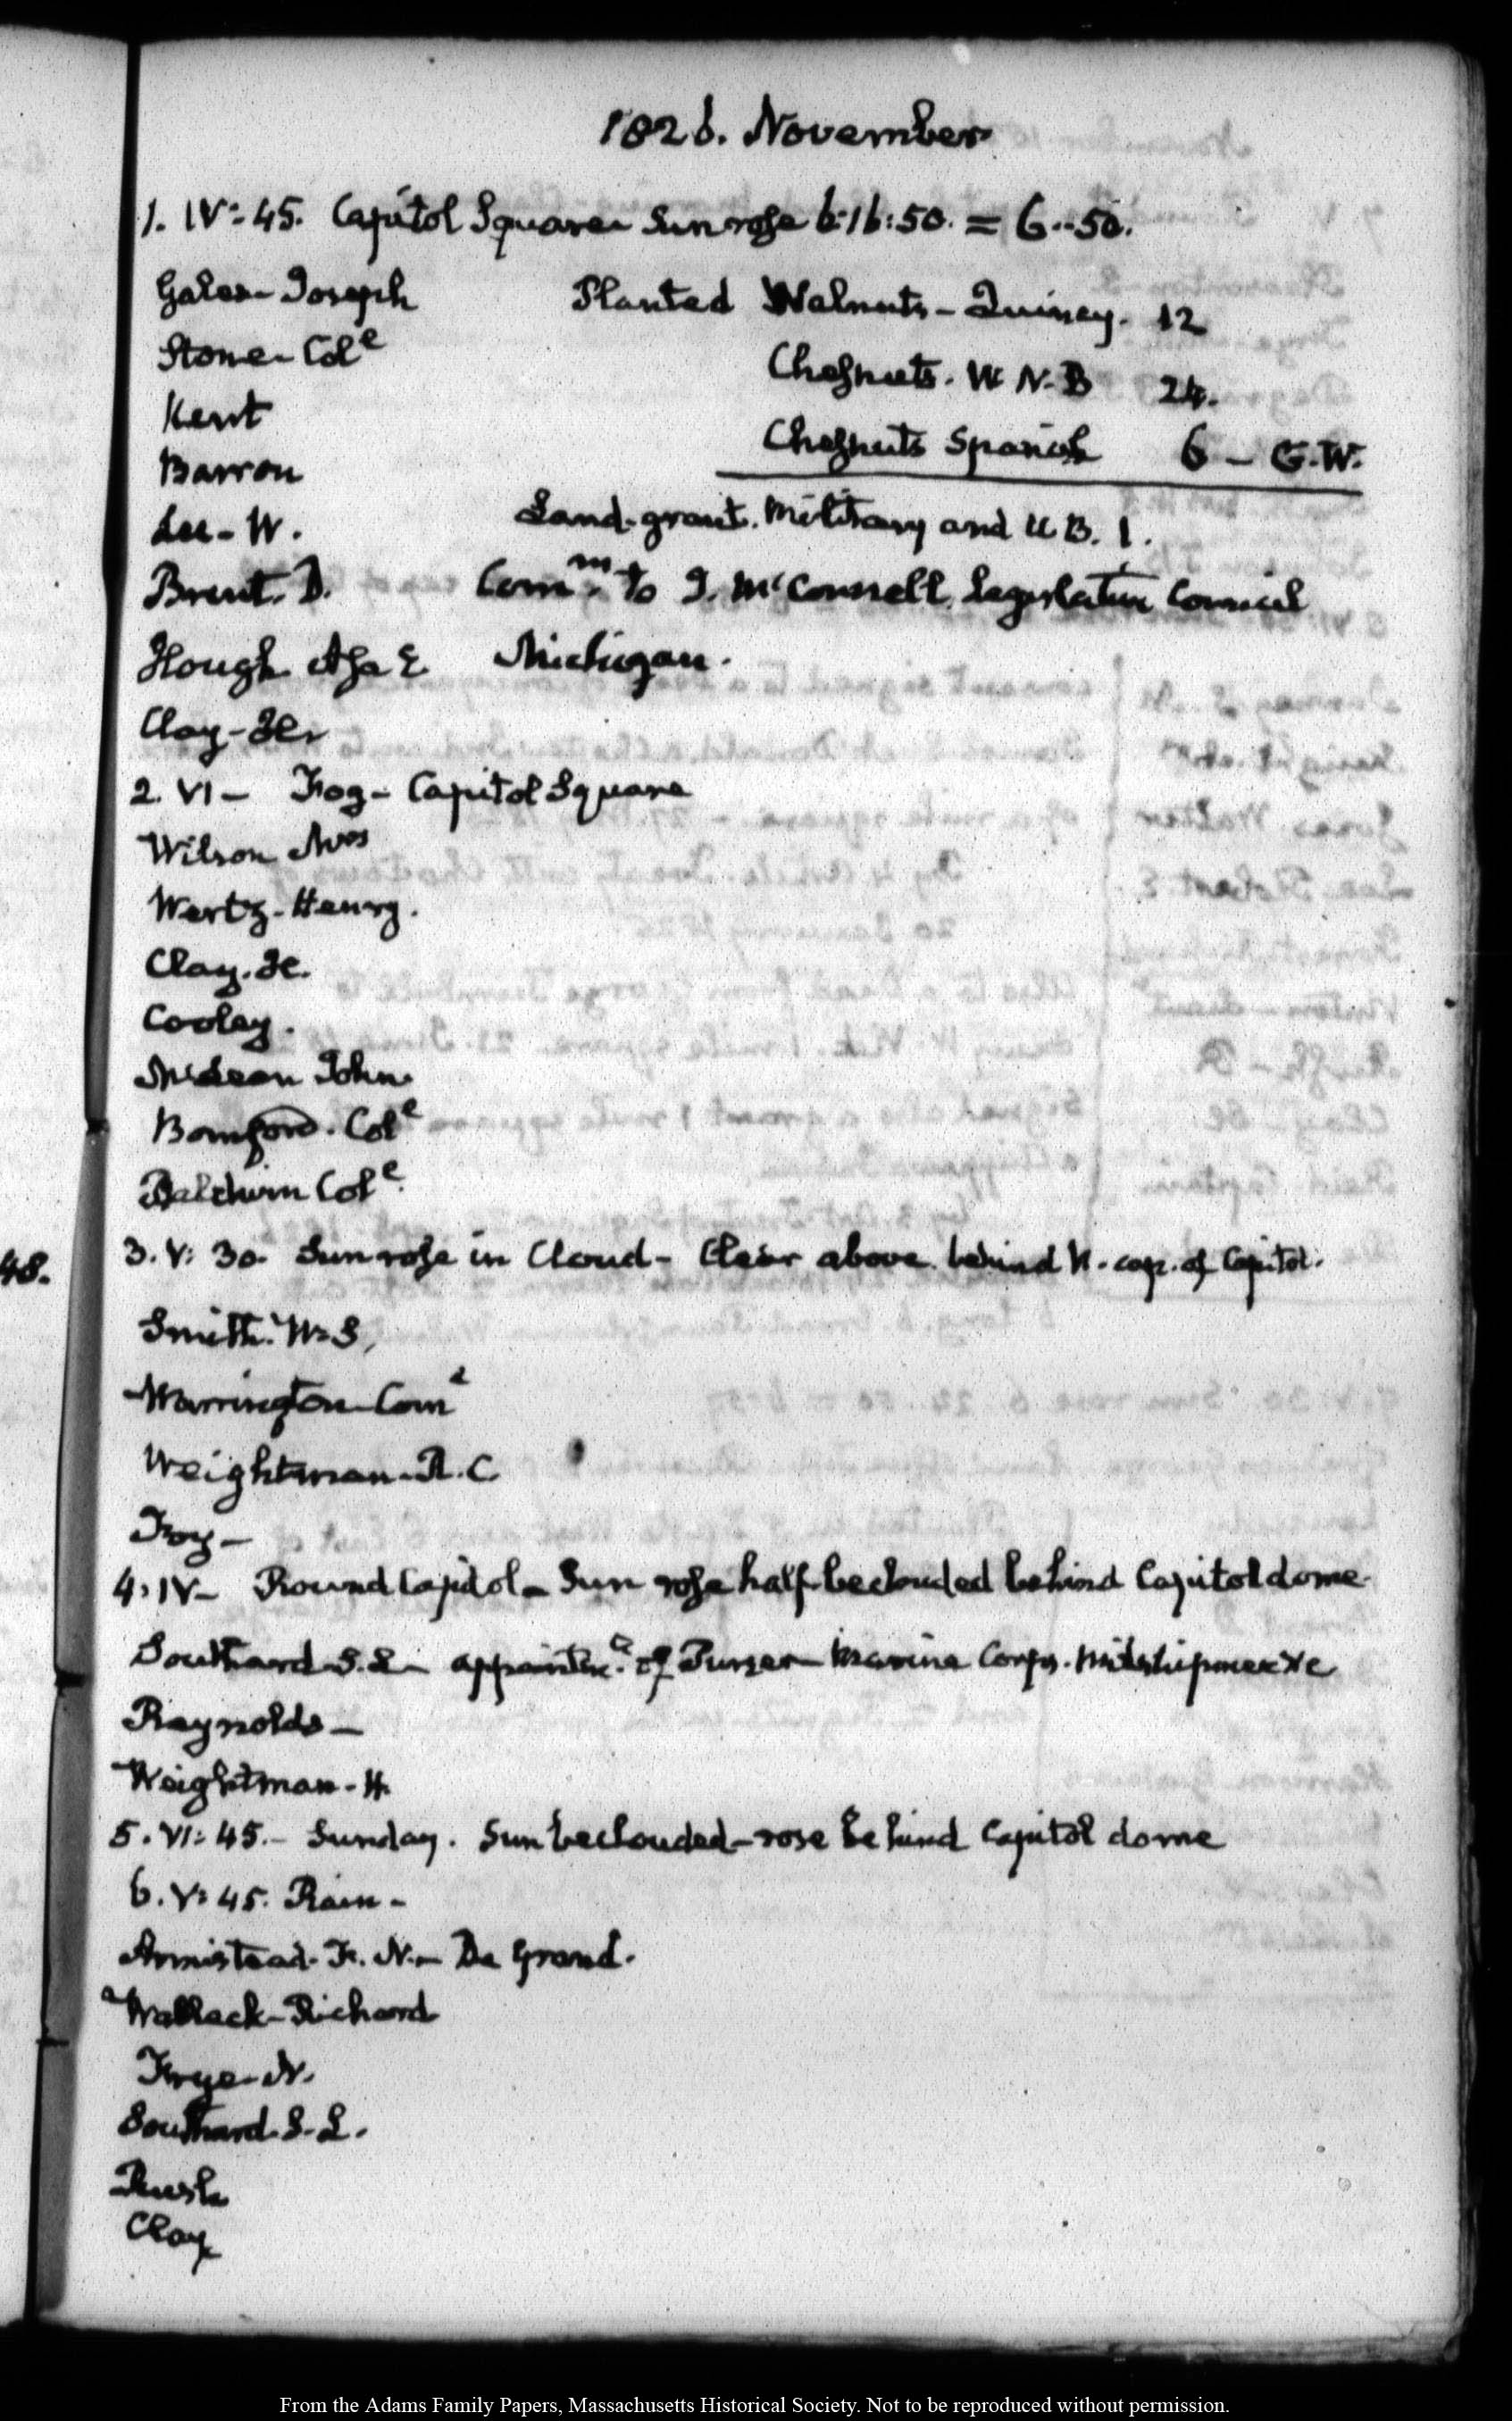 1826. November
1. IV:45. Capitol Square Sun rose 6:16:50. = 6..50.
Gales Joseph Planted Walnuts - Quincy. 12
Stone Col.^e
Chesnuts. W N. B 24.
Kent
Chesnuts Spanish 6 - G. W.
Barron
Lee - W. Land-grant. Military and U B. 1.
Brent. D. Com.^m to J. McConnell. Legislative Council
Hough Asa E Michigan.
Clay - H
2. VI - Fog - Capitol Square
Wilson
Wertz - Henry.
Clay. H.
Cooley.
McLean John
Bomford. Col.^e
Baldwin Col.^e
48.
3. V: 30. Sun rose in Cloud - Clear above. behind N. of Capitol.
Smith. W. S.
Warrington Com
Weightman - R. C
Foy -
4. IV - Round Capitol - Sun rose half beclouded behind Capitol dome
Southard S. L. of Purser Marine Corps. Midshipmen &c
Reynolds -
Weightman - H.
5. VI: 45. - Sunday. Sun beclouded - rose behind Capitol dome
6. V: 45. Rain -
Armistead. F. N. - De Grand.
Wallack - Richard
Frye - N.
Southard. S. L.
Rush
Clay
From the Adams Family Papers, Massachusetts Historical Society. Not to be reproduced without permission.